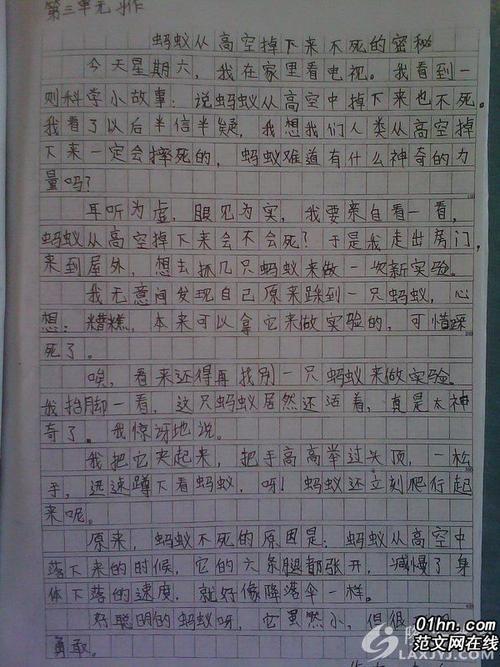 第三单元习作
蚂蚁从高空掉下来不死的密秘
今天星期六，我在家里看电视。我看到一
则科学小故事：说蚂蚁从高空中掉下来也不死。
我看了以后半信半疑，我想我们人类从高空掉
下来一定会摔死的，蚂蚁难道有什么神奇的力
量吗？
耳听为虚，眼见为实，我要亲自看一看，
蚂蚁从高空掉下来会不会死？于是我走出房门，
来到屋外，想去抓几只蚂蚁来做一次新实验。
我无意间发现自己原来踩到一只蚂蚁，心
想：糟糕，本来可以拿它来做实验的，可惜踩
死了。
唉，看来还得再找别一只蚂蚁来做实验。
我抬脚一看，这只蚂蚁居然还活着，真是太神
奇了。我惊讶地说。
我把它夹起来，把手高高举过头顶，一松
手，迅速蹲下看蚂蚁，呀！蚂蚁还立刻爬行起
来呢。
原来，蚂蚁不死的原因是：蚂蚁从高空中
落下来的时候，它的六条腿都张开，减慢了身
体下落的速度，就好像降落伞一样。
好聪明的蚂蚁呀，它虽然小，但很
勇敢。
01hn.com
范文网在线
LAXJYJ.COM